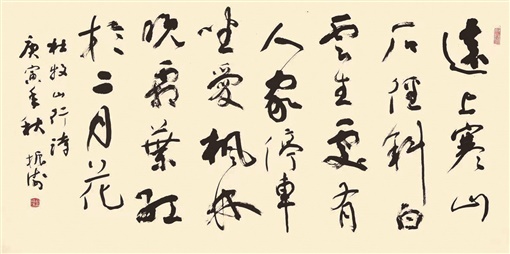 遠上寒山
石徑斜白
雲生處有
人家停車
坐愛楓林
晚霜葉紅
於二月花
杜牧山行詩
庚寅年秋振